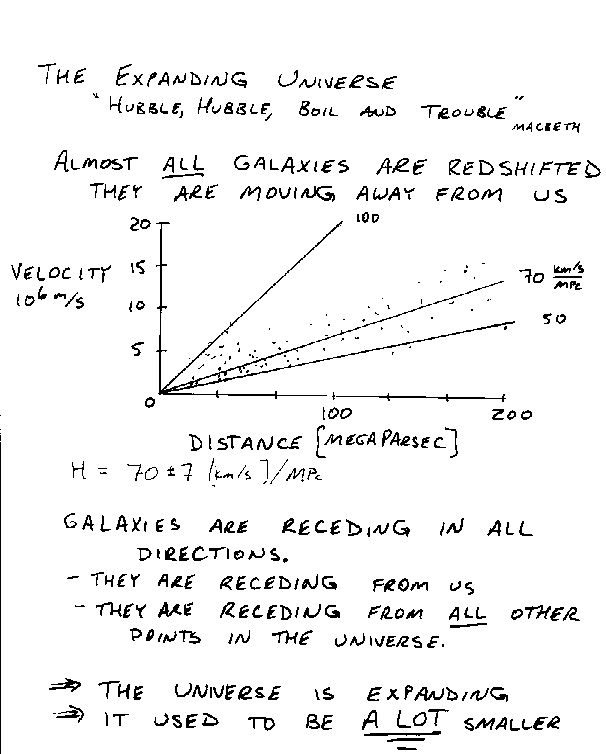 THE EXPANDING UNIVERSE
"HUBBLE, HUBBLE, BOIL AND TROUBLE"
MACBETH
ALMOST ALL GALAXIES ARE REDSHIFTED
THEY ARE MOVING AWAY FROM US
20
100
VELOCITY
10⁶ m/s
15
70 km/s/MPc
10
50
5
0
100
200
DISTANCE [MEGAPARSEC]
H = 70 ± 7 [km/s]/MPc
GALAXIES ARE RECEDING IN ALL
DIRECTIONS.
- THEY ARE RECEDING FROM US
- THEY ARE RECEDING FROM ALL OTHER
POINTS IN THE UNIVERSE.
⇒ THE UNIVERSE IS EXPANDING
⇒ IT USED TO BE A LOT SMALLER